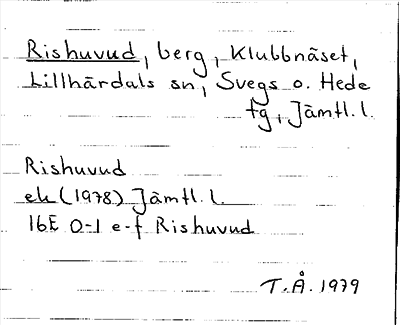 Rishuvud, berg, Klubbnäset,
Lillhärdals sn, Svegs o. Hede
tg, Jämtl. l.
Rishuvud
ek (1978) Jämtl. l.
16E 0-1 e-f Rishuvud
T.Å. 1979